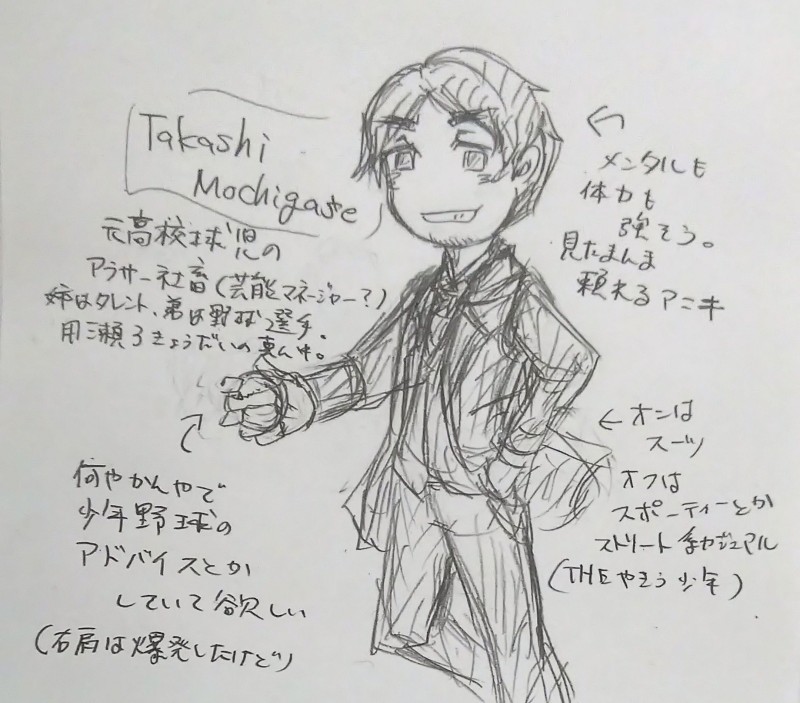 Takashi
Mochigase
元高校球児の
アラサー社畜(芸能マネージャー?)
姉はタレント、弟は野球選手。
用瀬3きょうだいの真ん中。
メンタルも
体力も
強そう。
見たまんま
頼れるアニキ
オンは
スーツ
オフは
スポーティーとか
ストリート系カジュアル
(THEやきう少年)
何やかんやで
少年野球の
アドバイスとか
していて欲しい
(右肩は爆発したけど)